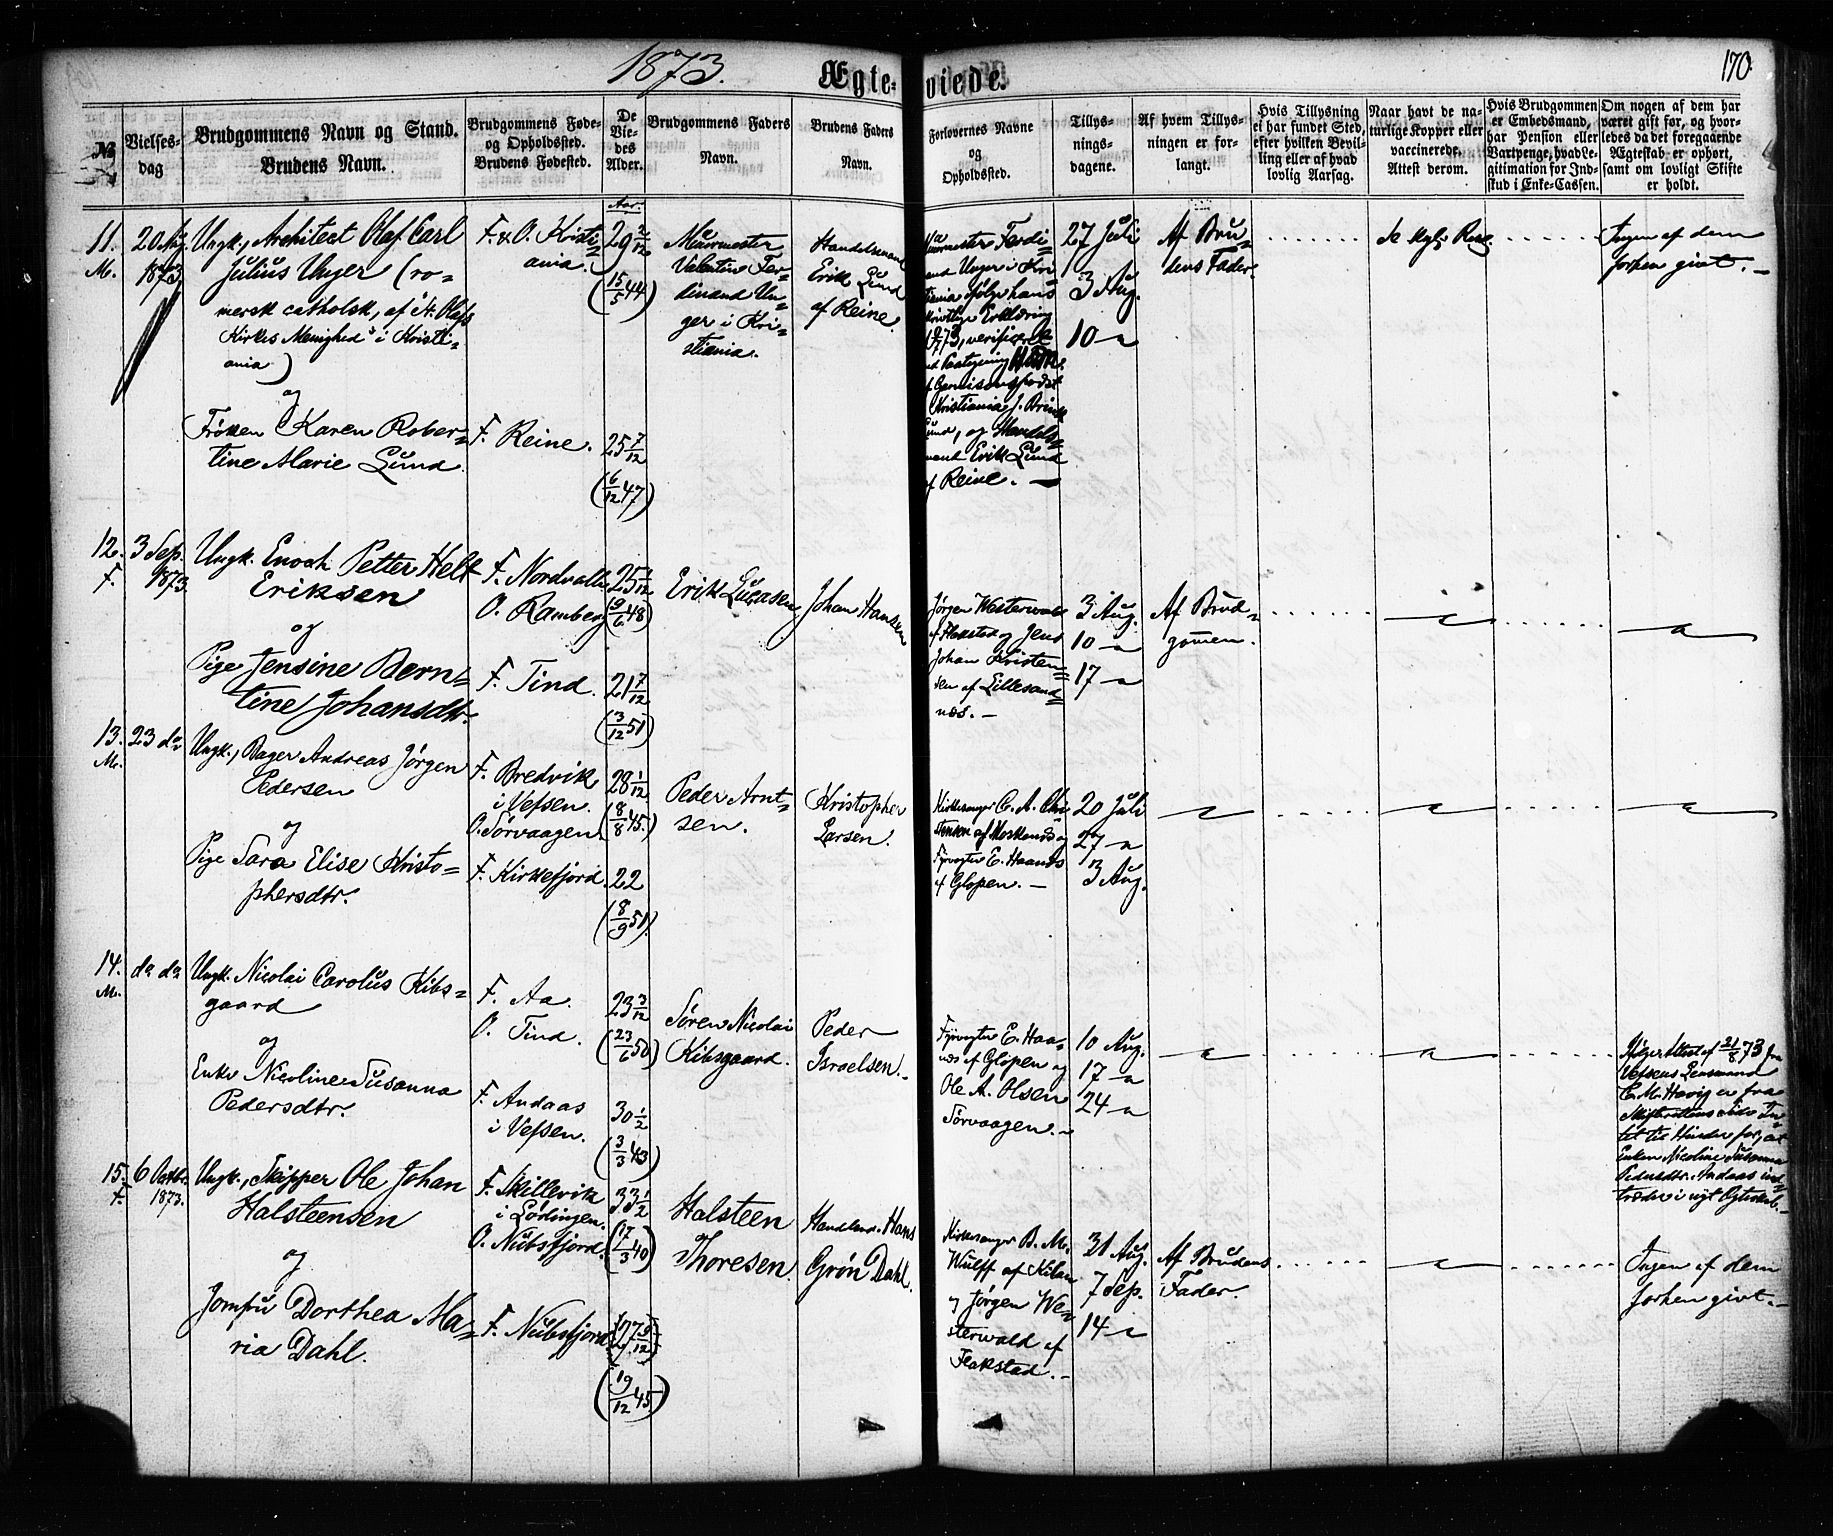 1873.
Ægteviede.
170
No
Vielses-
dag
Brudgommens Navn og Stand.
Brudens Navn.
Brudgommens Føde-
og Opholdssted.
Brudens Fødested.
De
Vie-
des
Alder.
Brudgommens Faders
Navn.
Brudens Faders
Navn.
Forlovernes Navne
og
Opholdssted.
Tillys-
nings-
dagene.
Af hvem Tillys-
ningen er for-
langt.
Hvis Tillysning
ei har fundet Sted,
efter hvilken Bevil-
ling eller af hvad
lovlig Aarsag.
Naar havt de na-
turlige Kopper eller
vaccinerede.
Attest derom.
Hvis Brudgommen
er Embedsmand,
har Pension eller
Vartpenge, hvad Le-
gitimation for Ind-
skud i Enke-Cassen.
Om nogen af dem har
været gift før, og hvor-
ledes da det foregaaende
Ægteskab er ophørt,
samt om lovligt Skifte
er holdt.
11.
M.
20 Aug.
1873.
Ungk., Architect Olaf Carl
Julius Unger (ro-
mersk catholsk, af St. Olafs
Kirkes Menighed i Kristi-
ania)
og
Frøken Karen Rober-
tine Marie Lund.
F. & O. Kristi-
ania.
F. Reine.
Aar.
29 2/12
(15/5 44)
25 7/12
(6/12 47)
Muurmester
Valentin Fer-
dinand Un-
ger i Kri-
stiania.
Handelsmand
Erik Lund
af Reine
Muurmester Ferdi-
nand Unger i Kri-
stiania ifølge hans
skriftlige Erklæring
73, verificeret
Kristiania J.
Lund, og Handels-
mand Erik Lund
af Reine.
27 Juli
3 Aug.
10 -
Af Bru-
dens Fader.
Ingen af dem
forhen givt.
12.
F.
3 Sep.
1873.
Ungk. Enoch Petter Helt
Eriksen
og
Pige Jensine Bern-
tine Johansdtr.
F. Nordvalle
O. Ramberg
F. Tind.
25 2/12
(9/6 48)
21 7/12
(3/12 51)
Erik Lucasen
Johan Hansen
Jørgen Westerwald
af Flakstad og Jens
Johan Kristen-
sen af Lillesand-
næs.
3 Aug.
10 -
17 -
Af Brud-
gomen.
13.
M.
23 do
Ungk., Bager Andreas Jørgen
Pedersen
og
Pige Sara Elise Kristo-
phersdtr.
F. Bredvik
i Vefsen.
O. Sørvaagen.
F. Kirkefjord.
28 1/12
(8/8 45)
22
(8/9 51)
Peder Arnt-
sen.
Kristopher
Larsen.
Kirkesanger C. A. Chri-
stensen af Moskenæs og
Fyrvogter E. Haanæs
af Glopen.
20 Juli
27 -
3 Aug.
14.
M.
do do
Ungk. Nicolai Carolus Kibs-
gaard
og
Enke Nicoline Susanna
Pedersdtr.
F. Aa.
O. Tind.
F. Andaas
i Vefsen.
23 3/12
(23/6 50)
30 1/2
(3/3 43)
Søren Nicolai
Kibsgaard.
Peder
Israelsen.
Fyrvogter E. Haa-
næs af Glopen og
Ole A. Olsen
Sørvaagen.
10 Aug.
17 -
24 -
Ifølge Attest af 21/8 73 fra
Vefsens Lensmand
C. M. Havig er fra
Skifterettens Side In-
tet til Hinder for, at
Enken Nicoline Susanna
Pedersdtr. Andaas ind-
træder i nyt Ægteskab.
15.
F.
6 Octbr.
1873.
Ungk., Skipper Ole Johan
Halsteensen
og
Jomfru Dorthea Ma-
ria Dahl.
F. Skillevik
i Lødingen.
O. Nubsfjord.
F. Nubsfjord
33 1/2
(17/3 40)
27 9/12
(19/12 45)
Halsteen
Thoresen.
Handelsm. Hans
Grøn Dahl.
Kirkesanger B. M.
Wulff af Kilan
og Jørgen We-
sterwald af
Flakstad.
31 Aug.
7 Sep.
14 -
Af Brudens
Fader.
Ingen af dem
forhen givt.